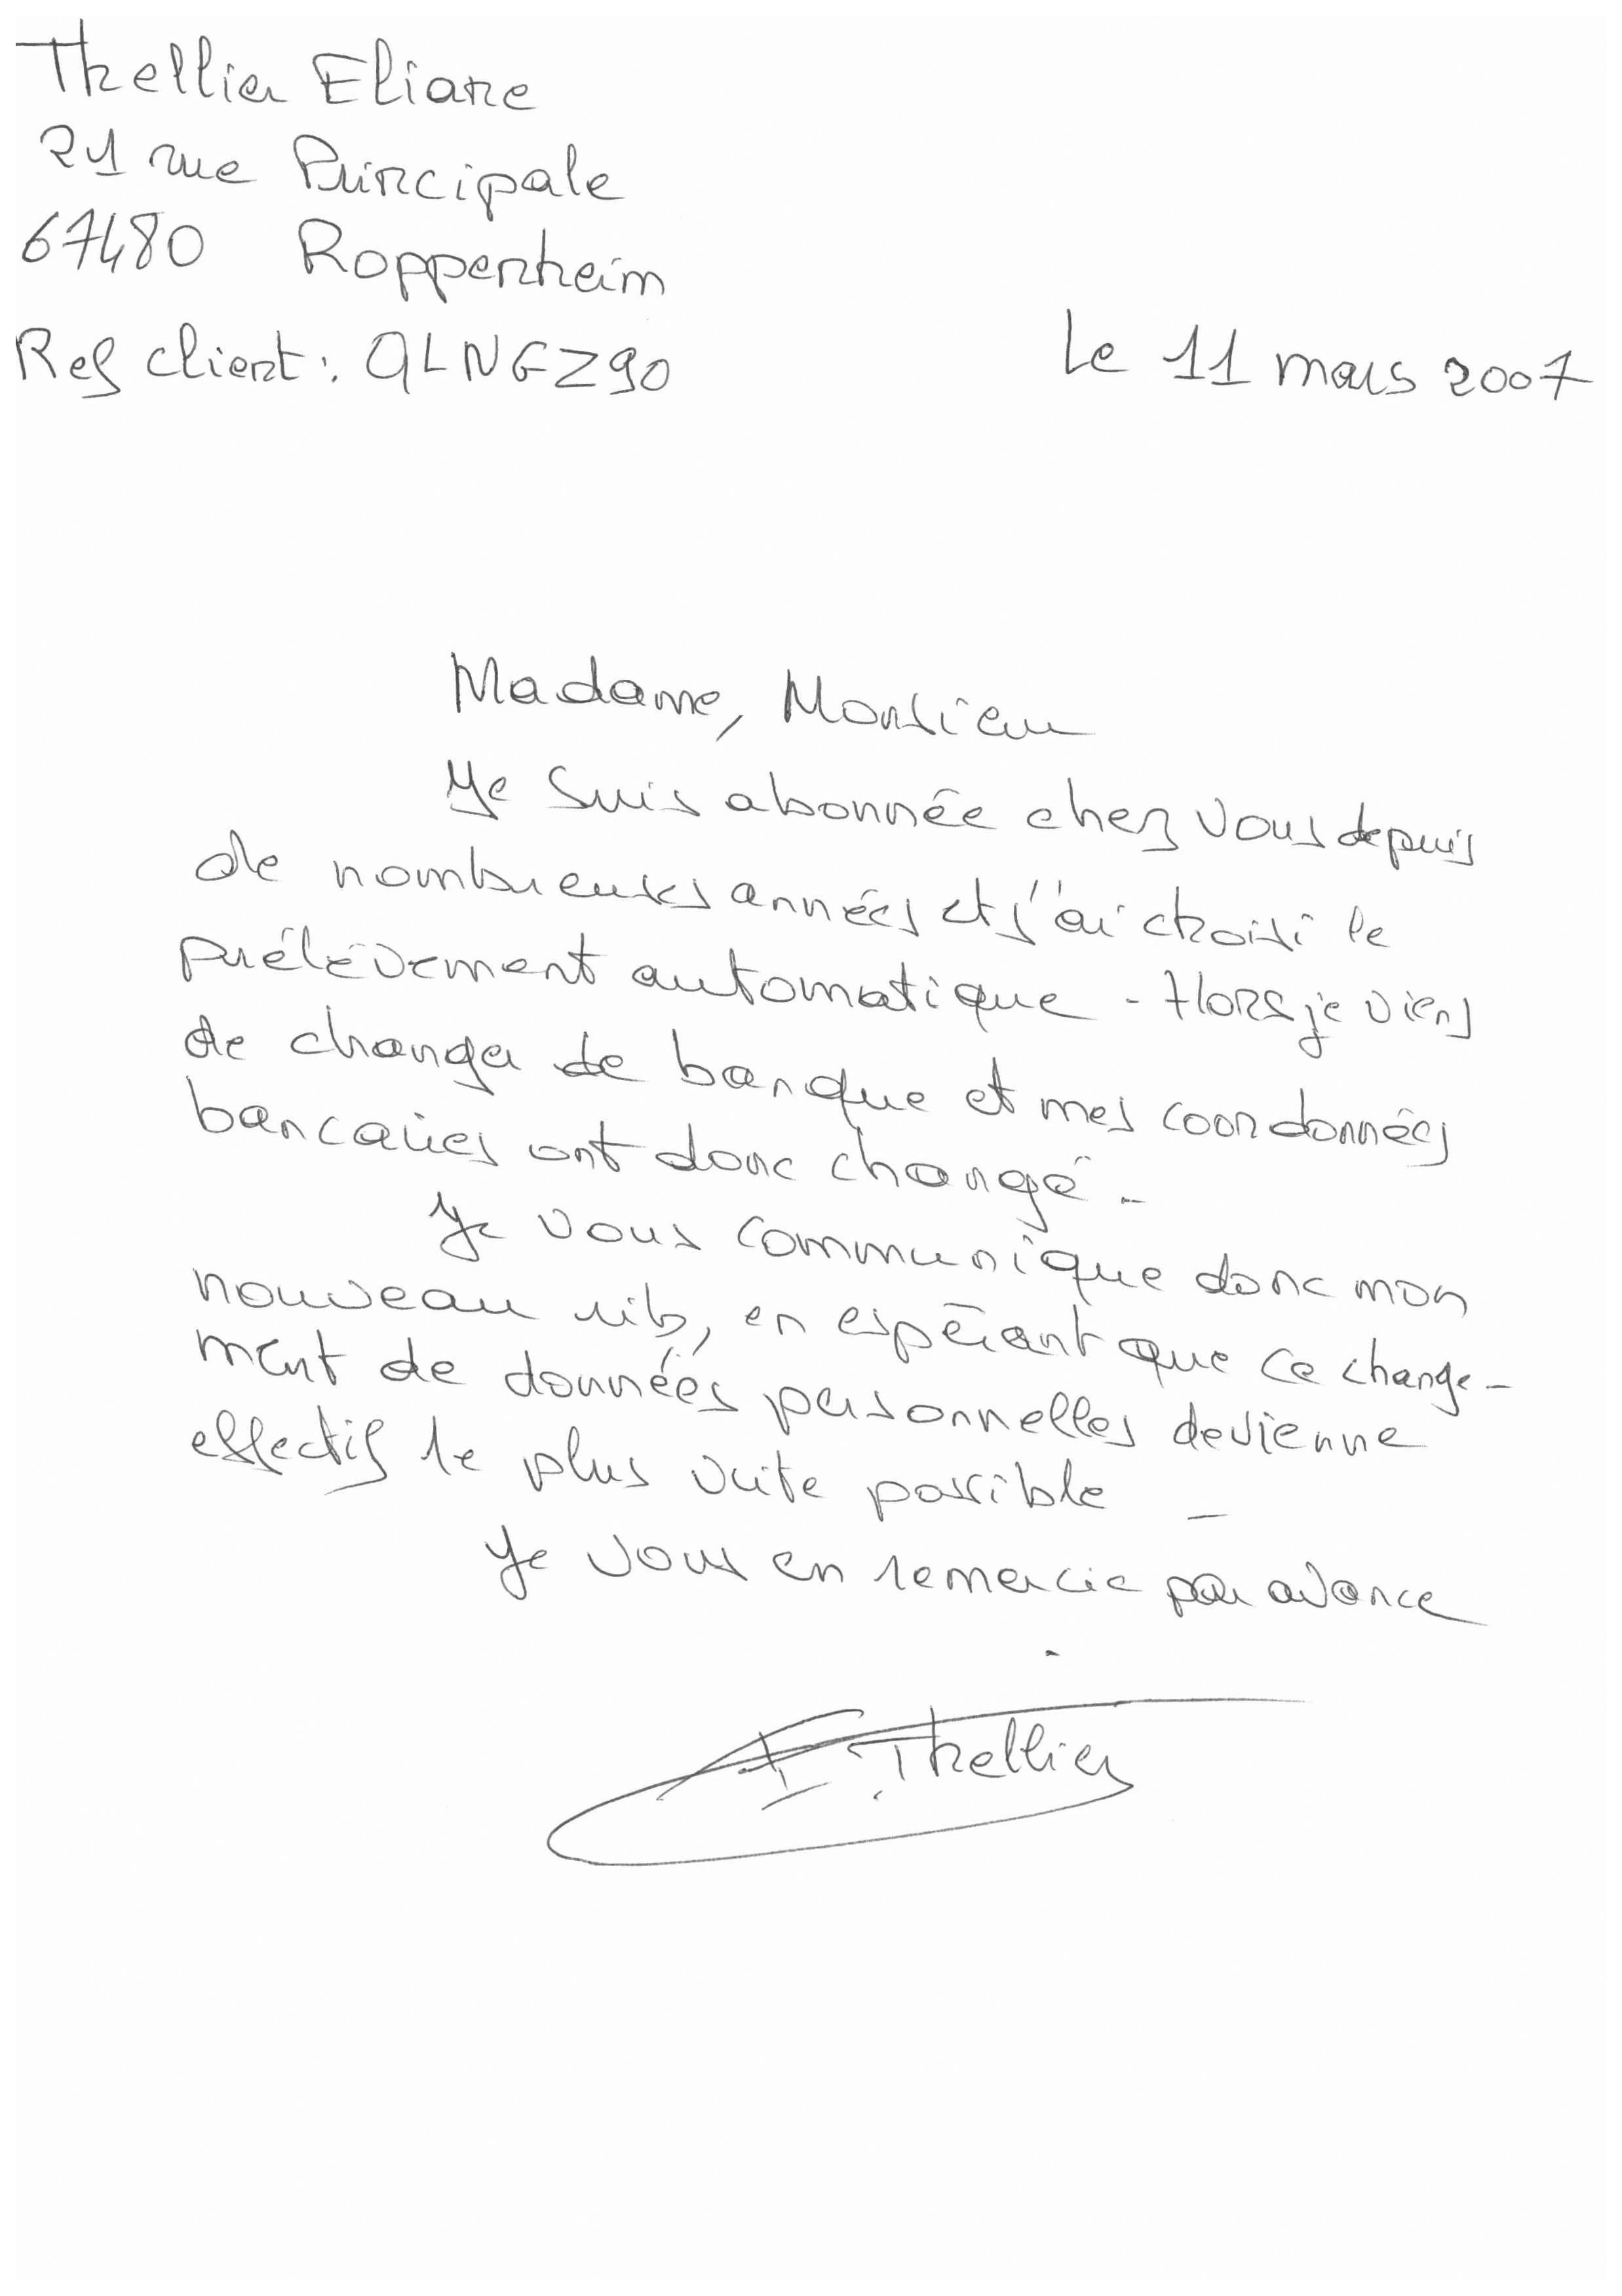 Thellier Eliane
21 rue Principale
67480 Roppenheim
Ref client : QLNGZ90
Le 11 mars 2007
Madame, Monsieur
Je suis abonnée chez vous depuis
de nombreuses années et j'ai choisi le
prélèvement automatique - Hors je viens
de changer de banque et mes coordonnées
bancaires ont donc changé -
Je vous communique donc mon
nouveau rib, en espérant que ce change-
ment de données personnelles devienne
effectif le plus vite possible -
Je vous en remercie par avance
.
E. Thellier